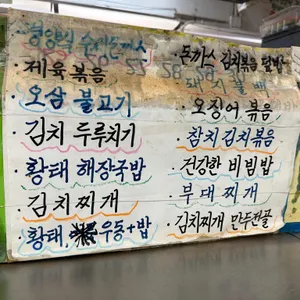 경양식 수제돈까스
· 제육 볶음
· 오삼 불고기
· 김치 두루치기
· 황태 해장국밥
· 김치찌개
· 황태, 우동+밥
· 돈까스 김치볶음 덮밥
돼지불백
· 오징어 볶음
· 참치김치볶음
· 건강한 비빔밥
· 부대찌개
· 김치찌개 만두전골